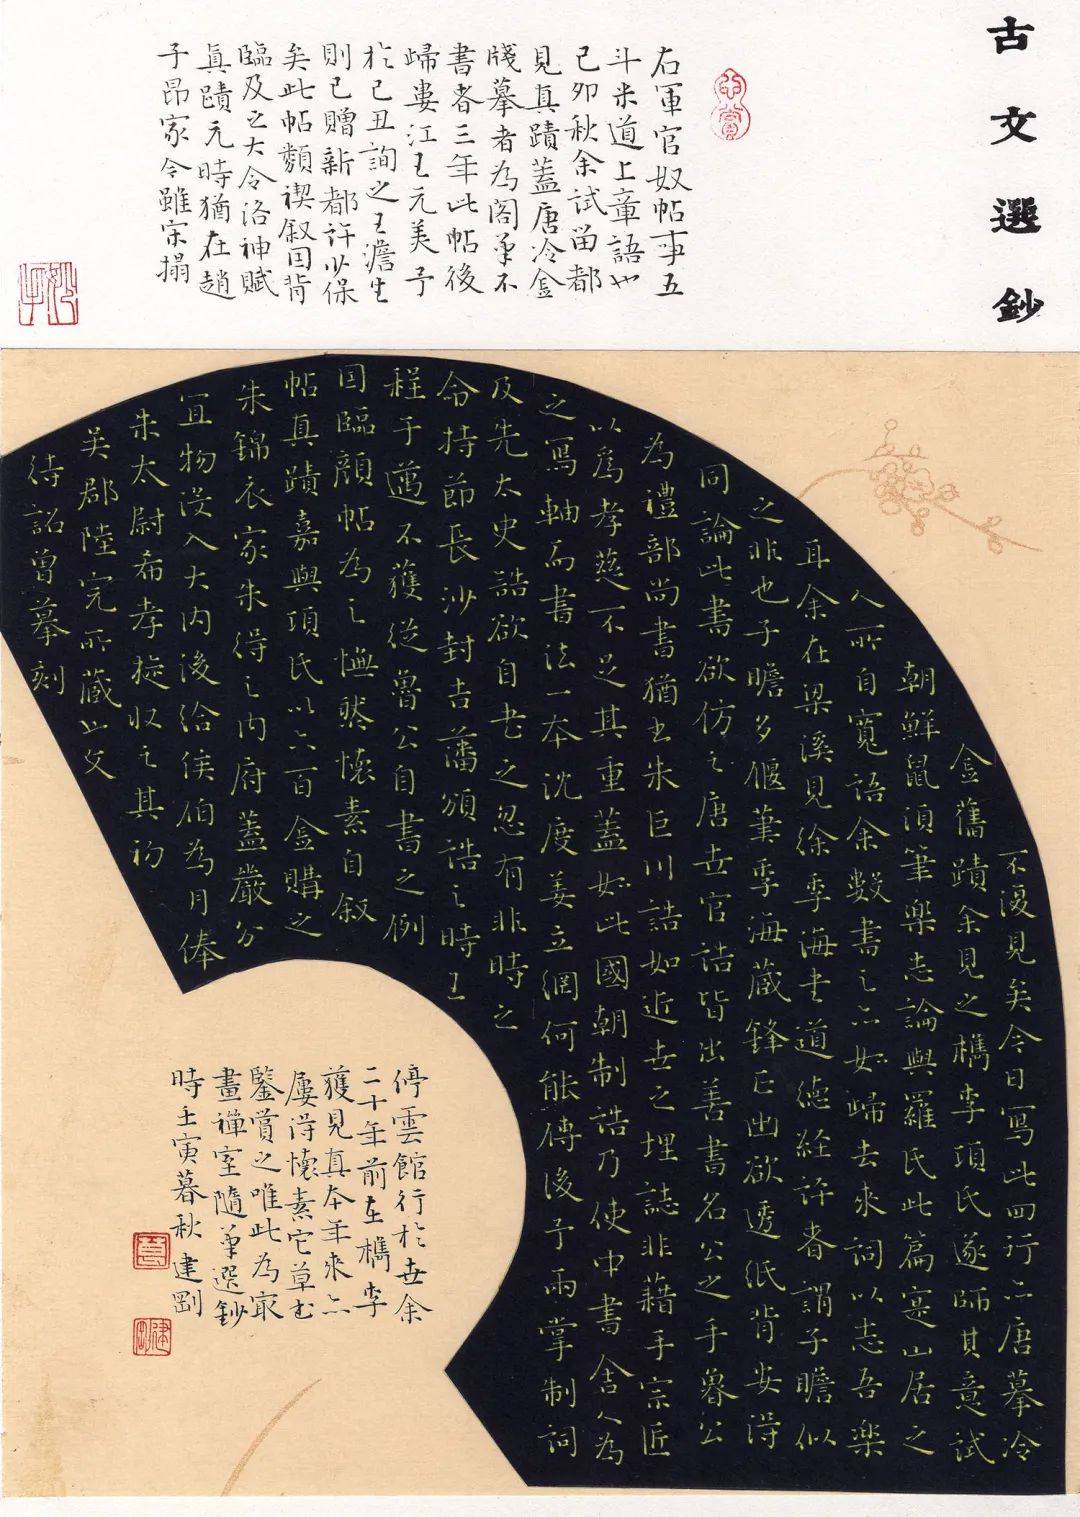 古文選鈔
右軍官奴帖事五
斗米道上章語也
己卯秋余試留都
見真蹟蓋唐冷金
牋摹者為閣筆不
書者三年此帖後
歸婁江王元美予
於己丑詢之王澹生
則已贈新都許少保
矣此帖類禊叙因背
臨及之大令洛神賦
真蹟元時猶在趙
子昂家今雖宋搨
不復見矣今日寫此四行亦唐摹冷
金舊蹟余見之檇李項氏遂師其意試
朝鮮鼠須筆樂志論與羅氏此篇寔山居之
人所自寬語余數書之亦如歸去來詞以志吾樂
耳余在梁溪見徐季海書道德經評者謂子瞻似
之非也子瞻多偃筆季海藏鋒正出欲透紙背安得
同論此書欲仿之唐世官誥皆出善書名公之手魯公
為禮部尚書猶書朱巨川誥如近世之埋誌非藉手宗匠
以為孝慈不足其重蓋如此國朝制誥乃使中書舍人為
之寫軸而書法一本沈度姜立綱何能傳後予兩掌制詞
及先太史誥欲自書之忍有非時之
命持節長沙封吉藩頒誥之時王
程于邁不獲從魯公自書之例
因臨顏帖為之憮然懷素自叙
帖真蹟嘉興項氏以六百金購之
朱錦衣家朱得之內府蓋嚴分
宜物沒入大內後給侯伯為月俸
朱太尉希孝旋收之其初
吳郡陸完所藏也文
待詔曾摹刻
停雲館行於世余
二十年前在檇李
獲見真本年來亦
屢得懷素它草書
鑒賞之唯此為最
畫禪室隨筆選鈔
時壬寅暮秋建剛